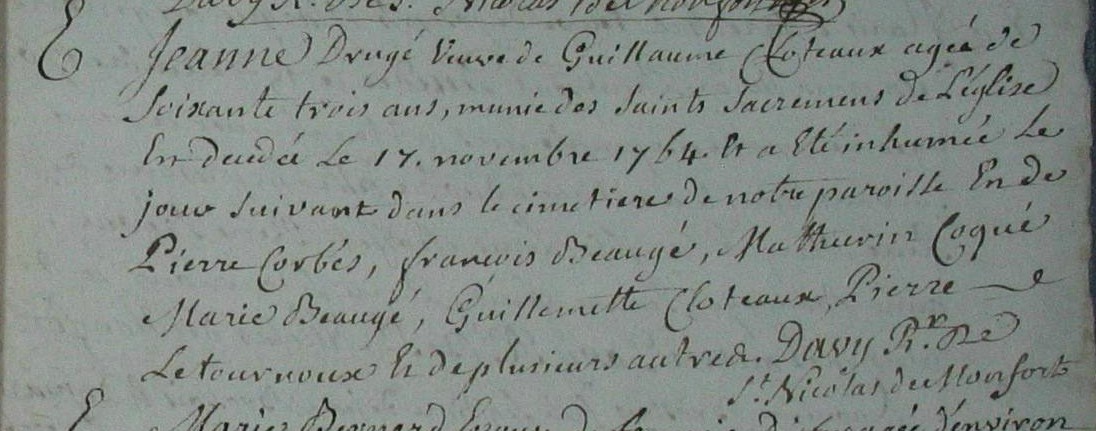 Davy R. De St. Nicolas de Monfort
E Jeanne Drugé Veuve de Guillaume Cloteaux agée de
soixante trois ans, munie des saints sacremens de L'église
Est decedée Le 17. novembre 1764. Et a Eté inhumée Le
jour suivant dans le cimetiere de notre paroisse En de
Pierre Corbés, françois Beaugé, Mathurin Coqué
Marie Beaugé, Guillemette Cloteaux, Pierre
Letournoux Et de plusieurs autres. Davy Rr. De
St. Nicolas de Monfort
E Marie Bernard Epouse de agée d'environ